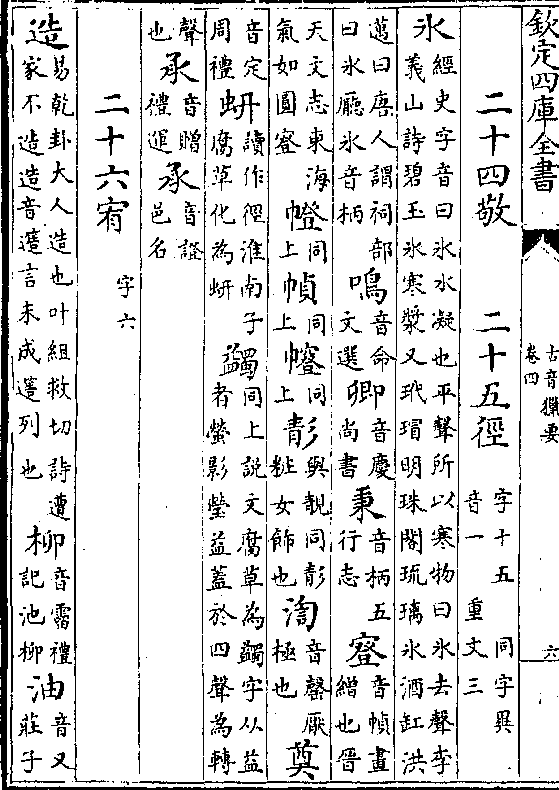 欽定四庫全書
古音獵要
卷四
六
二十四敬 二十五徑 字十五 同字異音一 重文三
氷 經史字音曰氷水凝也平聲所以寒物曰氷去聲李義山詩碧玉氷寒漿又玳瑁明珠閣琉璃氷酒缸洪
邁曰唐人謂祠部曰氷廳氷音柄 鳴 音命文選 卿 音慶尚書 秉 音柄五行志 音幀畫繒也晉
天文志東海氣如圓 同上 幀 同上 同上 與靚同 粧女飾也 音磬厥極也 奠
音定周禮 蚈 讀作徑淮南子腐草化為蚈 蠲 同上說文腐草為蠲字从益者螢影瑩益蓋於四聲為轉
聲也 承 音贈禮運 承 音證邑名
二十六宥 字六
造 易乾卦大人造也叶組救切詩遭家不造造音簉言未成簉列也 柳 音霤禮記池柳 油 音又莊子